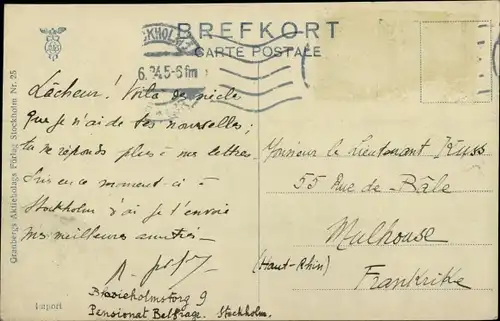 BREFKORT
CARTE POSTALE
CKHOLM 2
6. 24. 5-6 fm
Lâcheur! Voilà des siècles
que je n'ai de tes nouvelles;
tu ne réponds plus à mes lettres
Suis en ce moment-ci à
Stockholm d'où je t'envoie
mes meilleures amitiés—
Blasieholmstorg 9
Pensionat Belfrage. Stockholm.
Monsieur le Lieutenant Russ
55 Rue de Bâle
Mulhouse
(Haut-Rhin)
Frankrike
Granbergs Aktiebolags Förlag Stockholm Nr. 25
Import